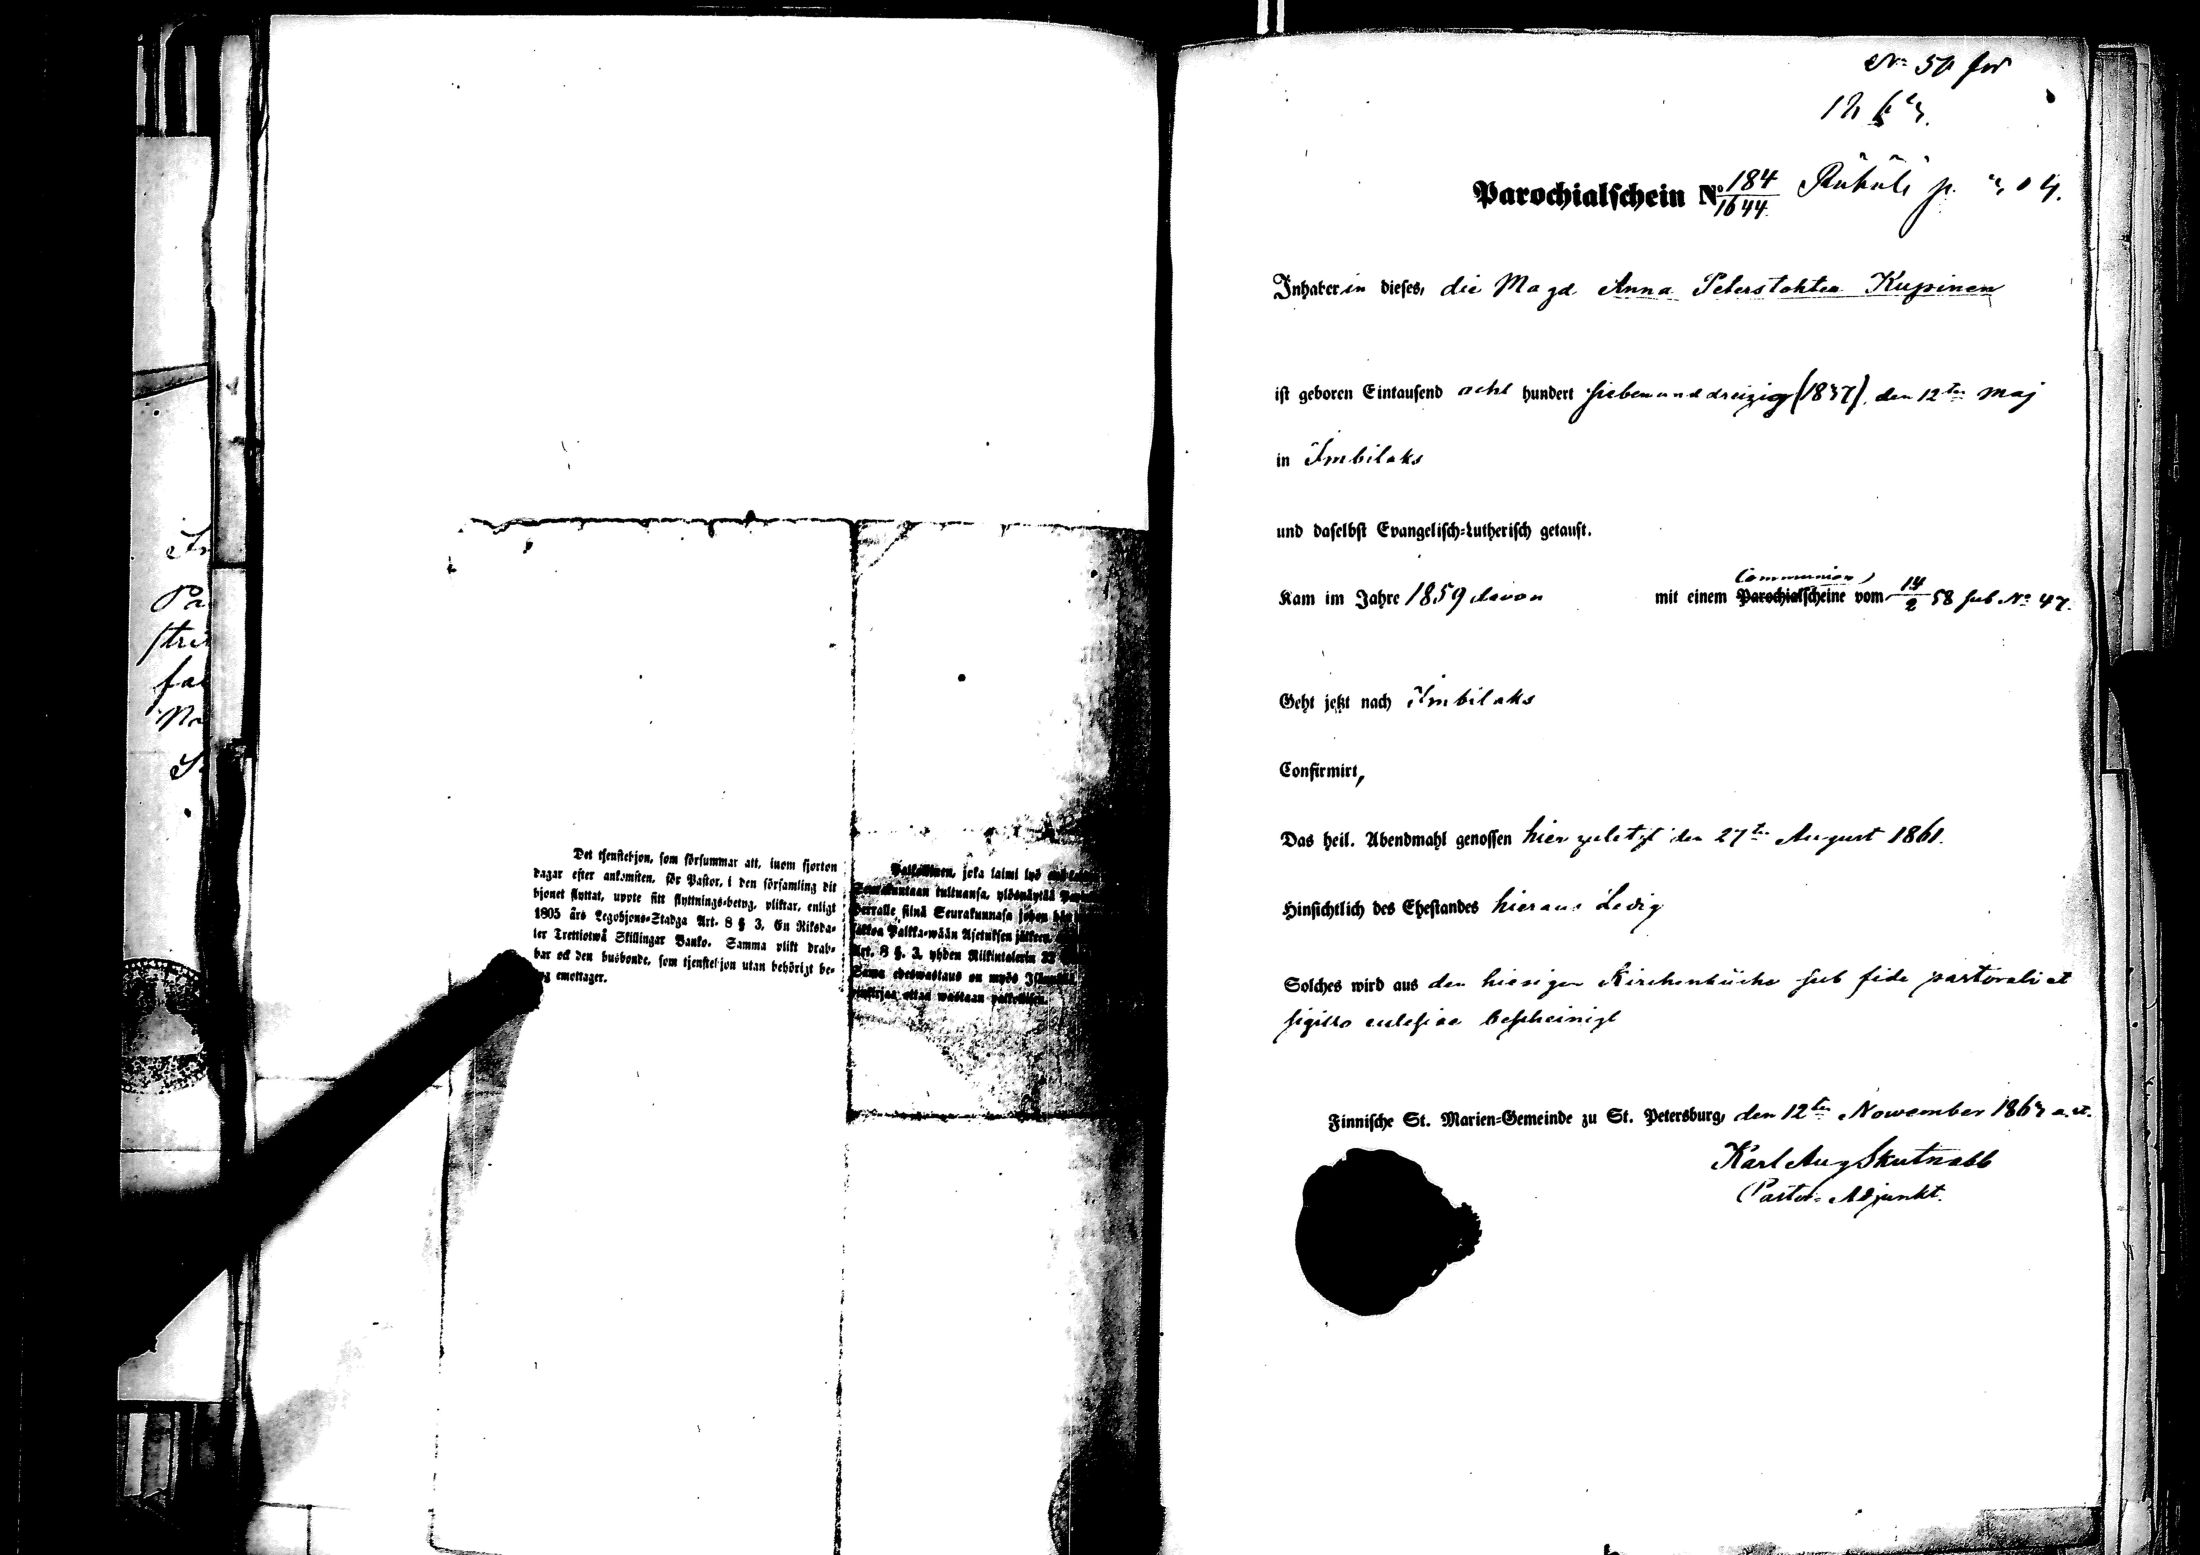 In
Pa
stri
fa
Det tjenstehjon, som försummar att, inom fjorton
dagar efter ankomsten, för Pastor, i den församling dit
hjonet flyttat, uppte sitt flyttnings-betyg, pliktar, enligt
1805 års Legohjons-Stadga Art. 8 § 3, En Riksda-
ler Trettiotwå Skillingar Banko. Samma plikt drab-
bar ock den husbonde, som tjenstehjon utan behörigt be-
tyg emottager.
Palkollinen, joka laimi lyö
Seurakuntaan tultuansa, ylösnäyttää
Herralle siinä Seurakunnasa johon hän
Palkka-wään Asetuksen jälkeen
Art. 8 §. 3. yhden Riikintalerin 32
Sama edeswastaus on myös
ottaa wastaan palkollisen.
No 50 for
Parochialschein No 184/1644 p.
Inhaberin dieses, die Magd Anna Peterstohter Kupinen
ist geboren Eintausend acht hundert siebenunddreizig (1837) den 12ten Maj
in Imbilaks
und daselbst Evangelisch-Lutherisch getauft.
Kam im Jahre 1859 davon mit einem Communion Parochialscheine vom 14/2 58 sub No 47.
Geht jetzt nach Imbilaks
Confirmirt,
Das heil. Abendmahl genossen hier zuletzt den 27ten August 1861.
Hinsichtlich des Ehestandes hieraus Ledig
Solches wird aus den hiesigen Kirchenbüche sub fide pastorali et
sigillo eclesiae bescheinigt
Finnische St. Marien-Gemeinde zu St. Petersburg, den 12ten November
Karl Aug Skutnabb
Pastor-Adjunkt.